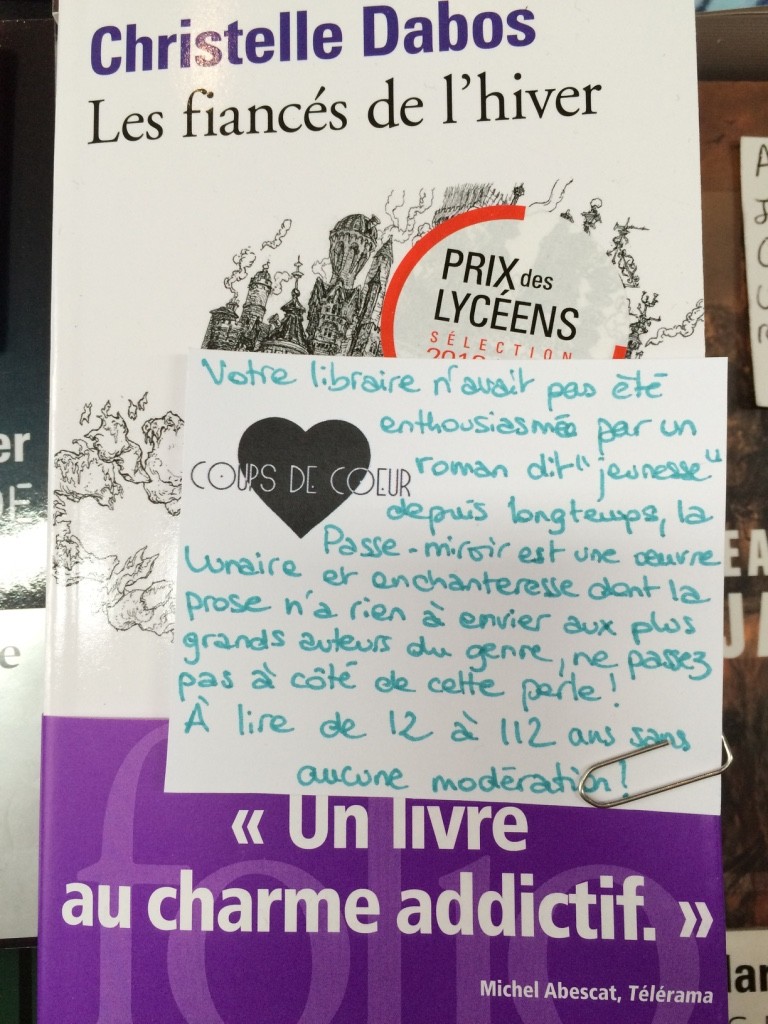 Christelle Dabos
Les fiancés de l'hiver
PRIX des
LYCÉENS
SÉLECTION
Votre libraire n'avait pas été
enthousiasmée par un
roman dit "jeunesse"
depuis longtemps, la
Passe-miroir est une œuvre
lunaire et enchanteresse dont la
prose n'a rien à envier aux plus
grands auteurs du genre, ne passez
pas à côté de cette perle !
À lire de 12 à 112 ans sans
aucune modération !
COUPS DE COEUR
« Un livre
au charme addictif. »
folio
Michel Abescat, Télérama